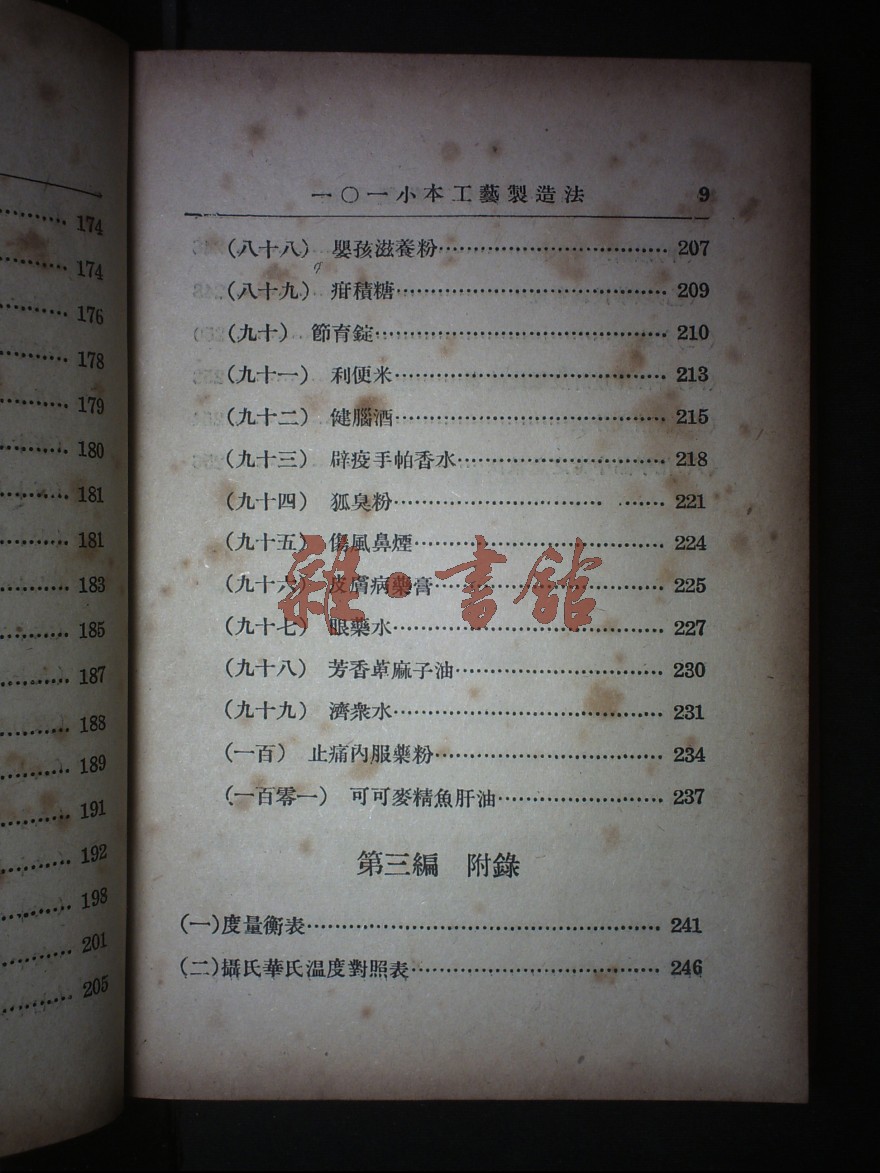 174
174
176
178
179
180
181
181
183
185
187
188
189
191
192
198
201
205
一〇一小本工藝製造法 9
(八十八) 嬰孩滋養粉 207
(八十九) 疳積糖 209
(九十) 節育錠 210
(九十一) 利便米 213
(九十二) 健腦酒 215
(九十三) 辟疫手帕香水 218
(九十四) 狐臭粉 221
(九十五) 傷風鼻煙 224
(九十六) 皮膚病藥膏 225
(九十七) 眼藥水 227
(九十八) 芳香萆麻子油 230
(九十九) 濟衆水 231
(一百) 止痛內服藥粉 234
(一百零一) 可可麥精魚肝油 237
第三編 附錄
(一)度量衡表 241
(二)攝氏華氏溫度對照表 246
雜·書館